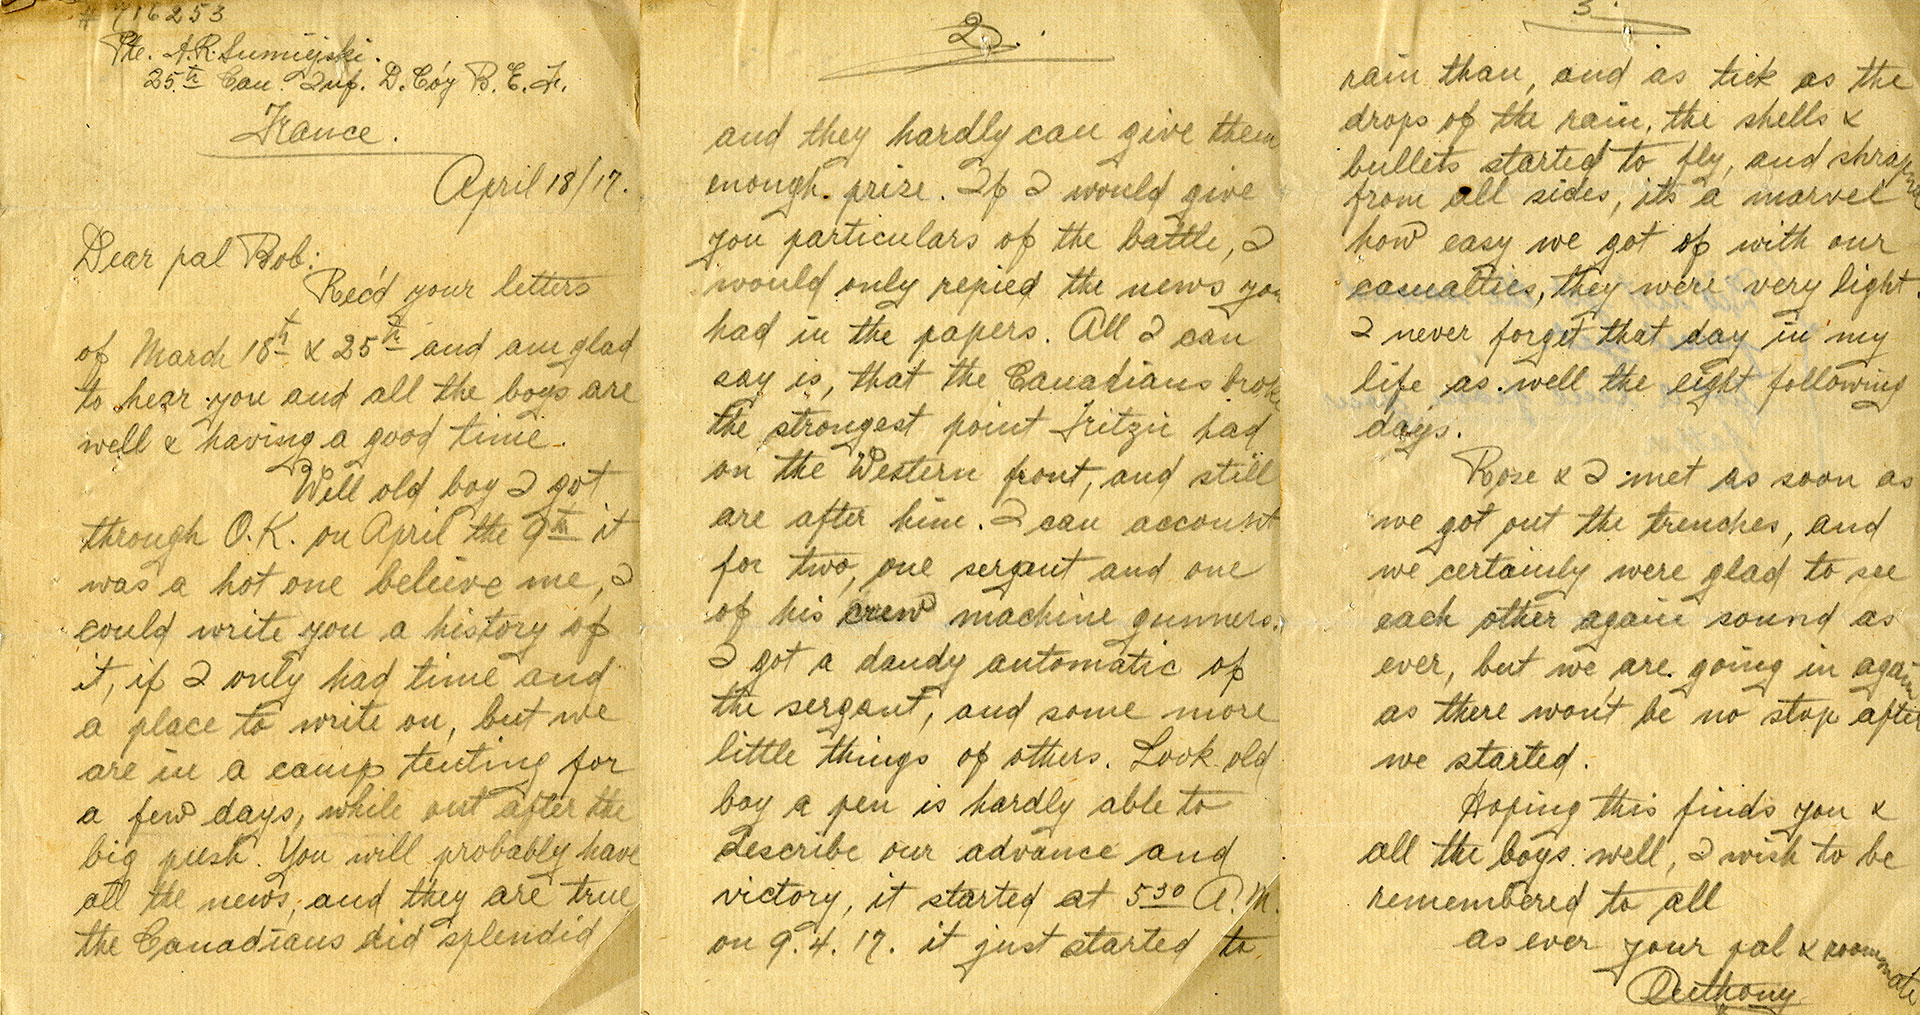 # 716253
Pte. A.R. Sumiejski.
25th Can. Inf. D. Co'y B. E. F.
France.
April 18/17.
Dear pal Bob:
Rec'd your letters
of March 18th & 25th and am glad
to hear you and all the boys are
well & having a good time.
Well old boy I got
through O.K. on April the 9th it
was a hot one beleive me, I
could write you a history of
it, if I only had time and
a place to write on, but we
are in a camp tenting for
a few days, while out after the
big push. You will probably have
all the news, and they are true
the Canadians did splendid
2.
and they hardly can give them
enough prize. If I would give
you particulars of the battle, I
would only repied the news you
had in the papers. All I can
say is, that the Canadians broke
the strongest point Fritzie had
on the Western front, and still
are after him. I can account
for two, one sergant and one
of his crew machine gunners.
I got a dandy automatic of
the sergant, and some more
little things of others. Look old
boy a pen is hardly able to
describe our advance and
victory, it started at 530 A.M.
on 9.4.17. it just started to
3.
rain than, and as tick as the
drops of the rain, the shells &
bullets started to fly, and shrapnel
from all sides, its a marvel
how easy we got of with our
casualties, they were very light.
I never forget that day in my
life as well the eight following
days.
Rose & I met as soon as
we got out the trenches, and
we certainly were glad to see
each other again sound as
ever, but we are going in again
as there won't be no stop after
we started.
Hoping this finds you &
all the boys well, I wish to be
remembered to all
as ever your pal & roommate
Anthony